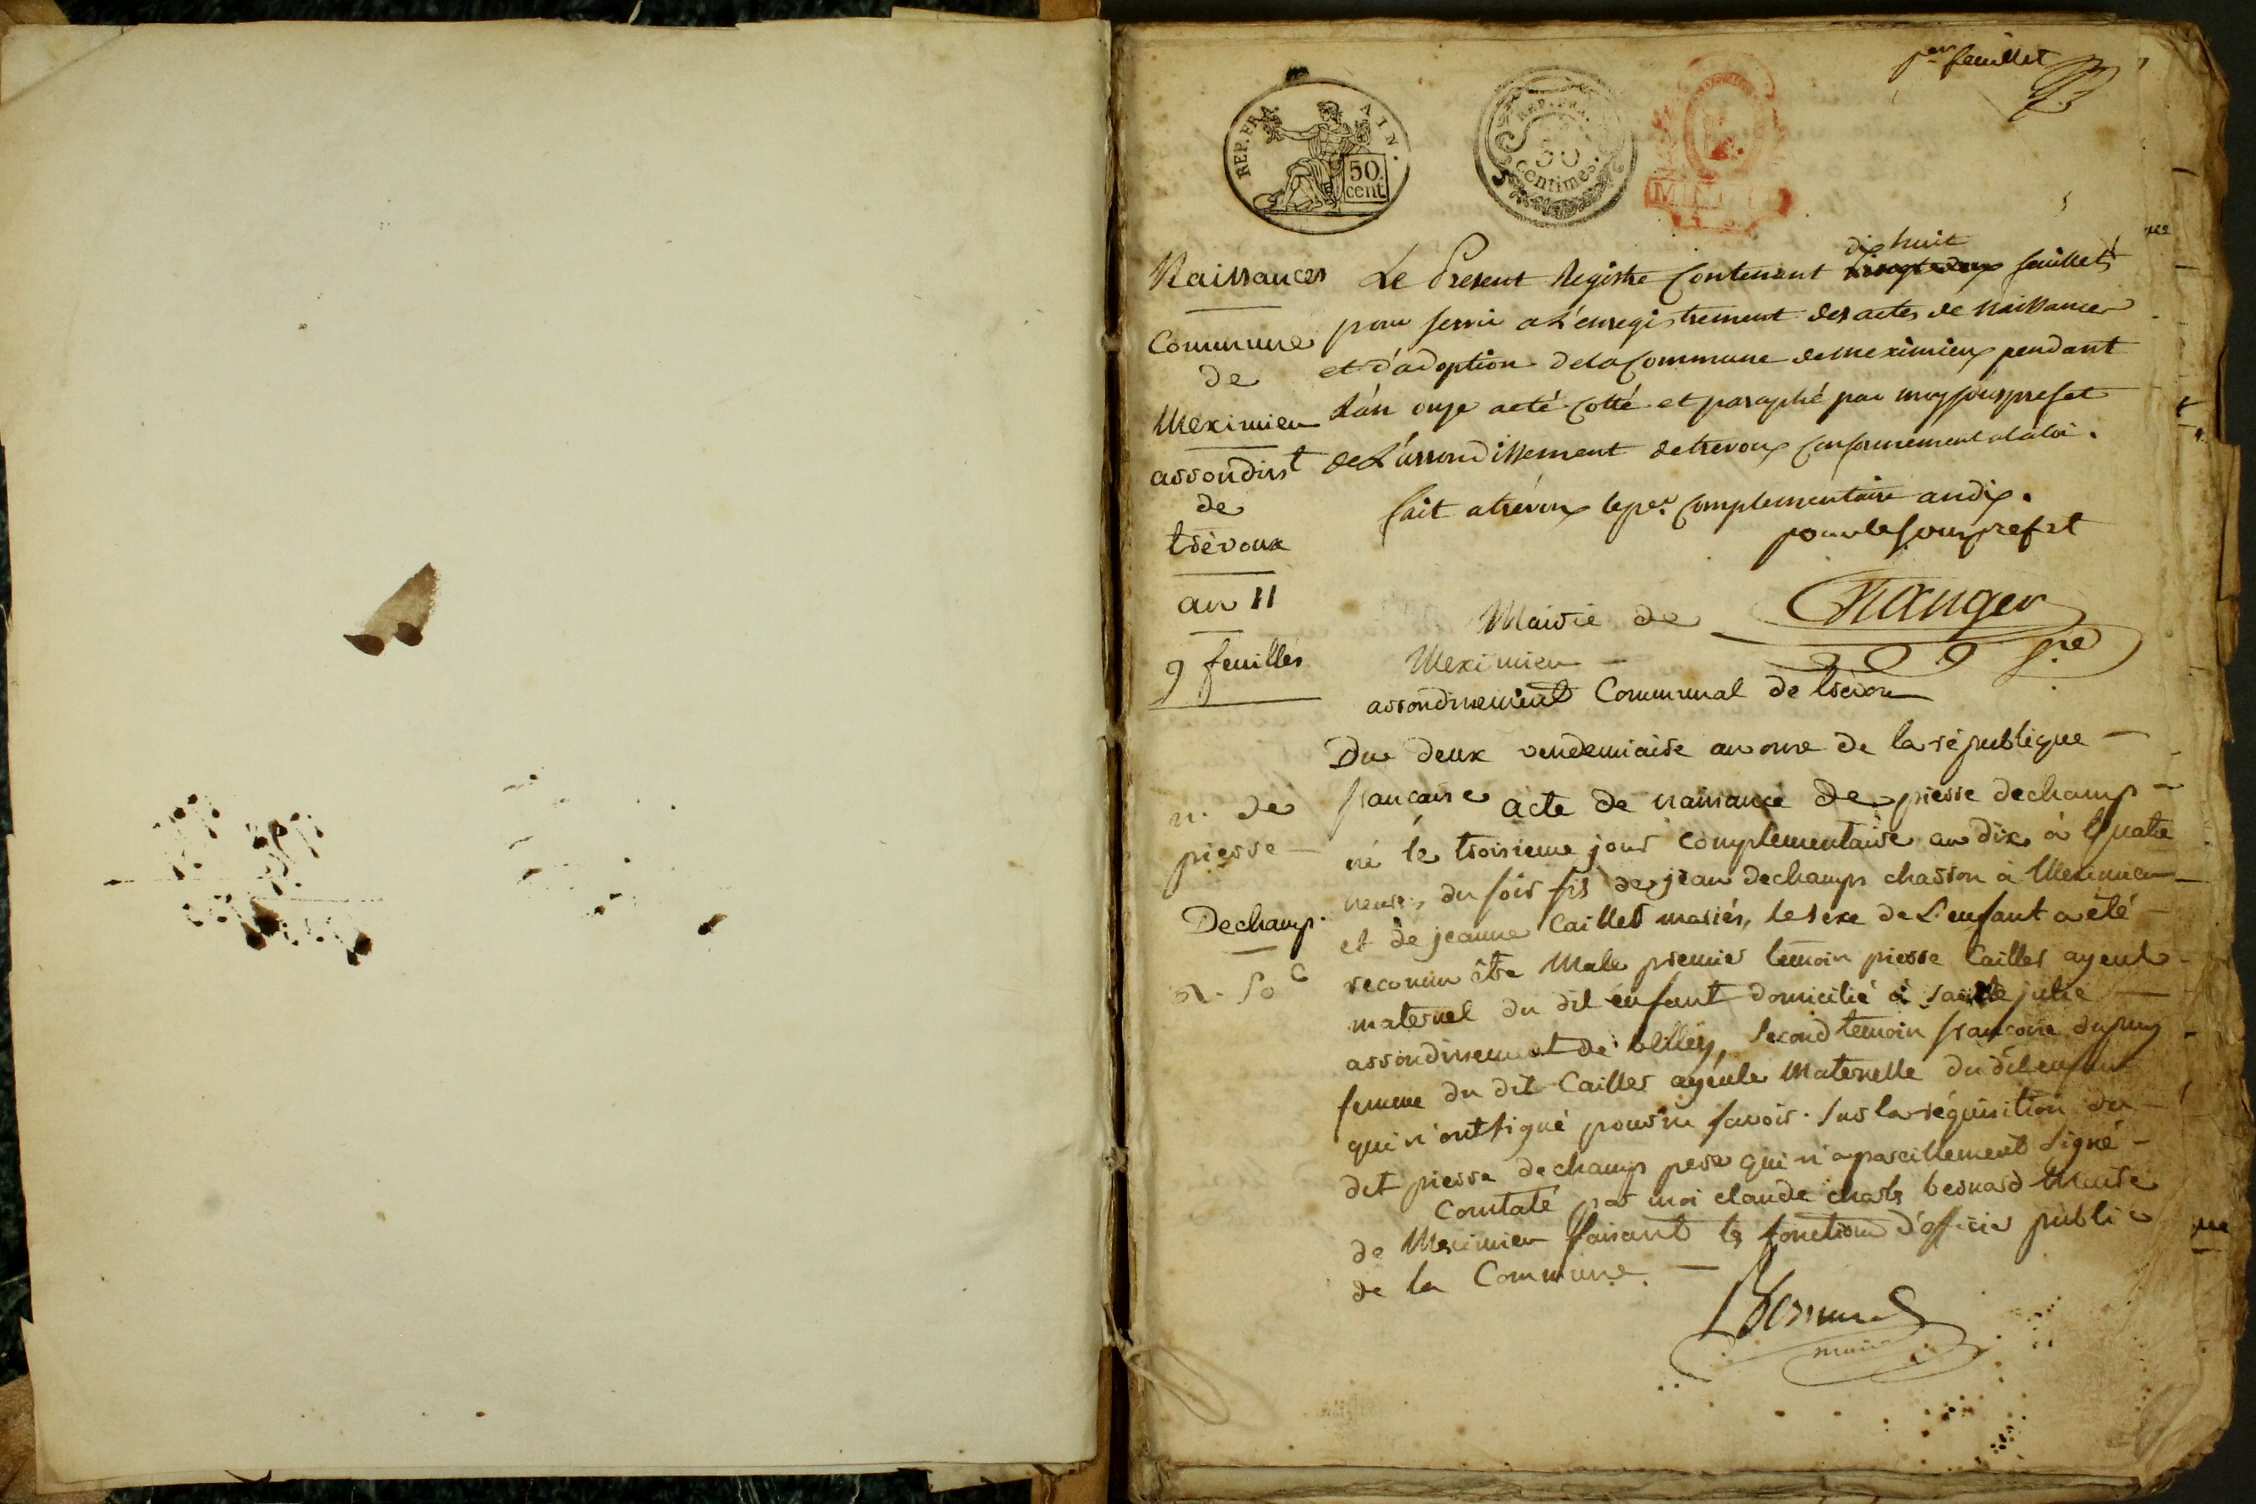 per feuillet
REP. FRA. AIN.
50 cent
REP. FRA.
50
Centimes.
Naissances
Commune
de
Meximieu
arrondist
de
trévoux
an 11
9 feuillés
Le Present Registre Contenant dix huit feuillets
pour servir a L'enregistrement des actes de Naissances
et d'adoption de la Commune de meximieux pendant
L'an onze acté cotté et paraphé par moy sous prefet
de L'arrondissement de trevoux conformement a la loi.
fait a trévoux le per. complementaire an dix.
pour le sous prefet
Nauger
sre
Mairie de
Meximieu
arrondissement Communal de trévou
Du deux vendemiaire an onze de la république
francaise acte de naissance de pierre dechamp
né le troisieme jour complementaire an dix à quatre
heures du soir fils de jean dechamps charron à Meximieu
et de jeanne Cailler mariés, le sexe de L'enfant a été
reconnu être Male premier temoin pierre Cailler ayeul
maternel du dit enfant domicilié à sainte julie
arrondissement de belley, second temoin francoise dupuy
femme du dit Cailler ayeule Maternelle du dit enfant
qui n'ont signé pour ne savoir. sur la réquisition du
dit pierre dechamps pere qui n'a pareillement signé
Constaté par moi claude charles bernard Maire
de Meximieu faisant les fonctions d'officier public
de la Commune.
n. de
pierre
Dechamp.
Bernard
maire